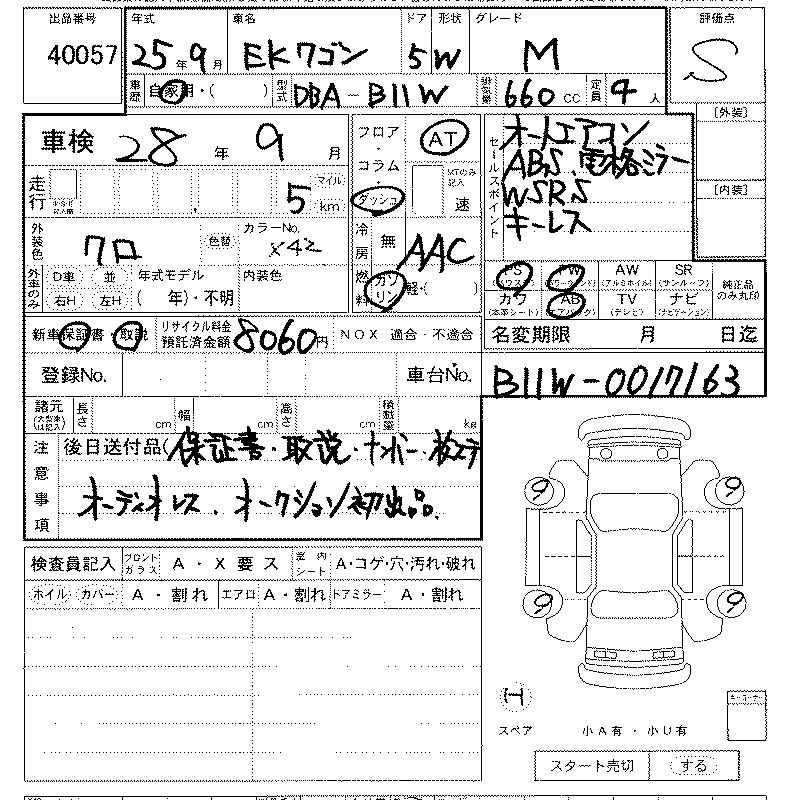 出品番号 年式 車名 ドア 形状 グレード 評価点
40057 25年9月 EKワゴン 5 W M S
車歴 自家用・( ) 型式 DBA-B11W 排気量 660 CC 定員 4 人
[外装]
車検 28年9月 フロア・コラム・ダッシュ AT セールスポイント オートエアコン
ABS、電格ミラー
WSRS
キーレス
走行 5 マイル km MTのみ記入 速 [内装]
外装色 クロ 色替 カラーNo. X42 冷房 無 AAC
外車のみ D車 並 年式モデル 内装色 燃料 ガソリン 軽・( )
右H 左H ( 年)・不明
PS (パワステ) PW (パワーウィンド) AW (アルミホイル) SR (サンルーフ) 純正品のみ丸印
カワ (本革シート) AB (エアバッグ) TV (テレビ) ナビ (ナビゲーション)
新車保証書・取説 リサイクル料金預託済金額 8060円 NOX 適合・不適合 名変期限 月 日迄
登録No. 車台No. B11W-0017163
諸元 (大型車は記入) 長さ cm 幅 cm 高さ cm 積載量 kg
注意事項 後日送付品(保証書・取説・ナンバー・
オーディオレス、オークション初出品。
検査員記入 フロントガラス A・X要ス 室内シート A・コゲ・穴・汚れ・破れ
ホイル カバー A・割れ エアロ A・割れ ドアミラー A・割れ
9 9
9 9
スペア 小A有・小U有
スタート売切 する